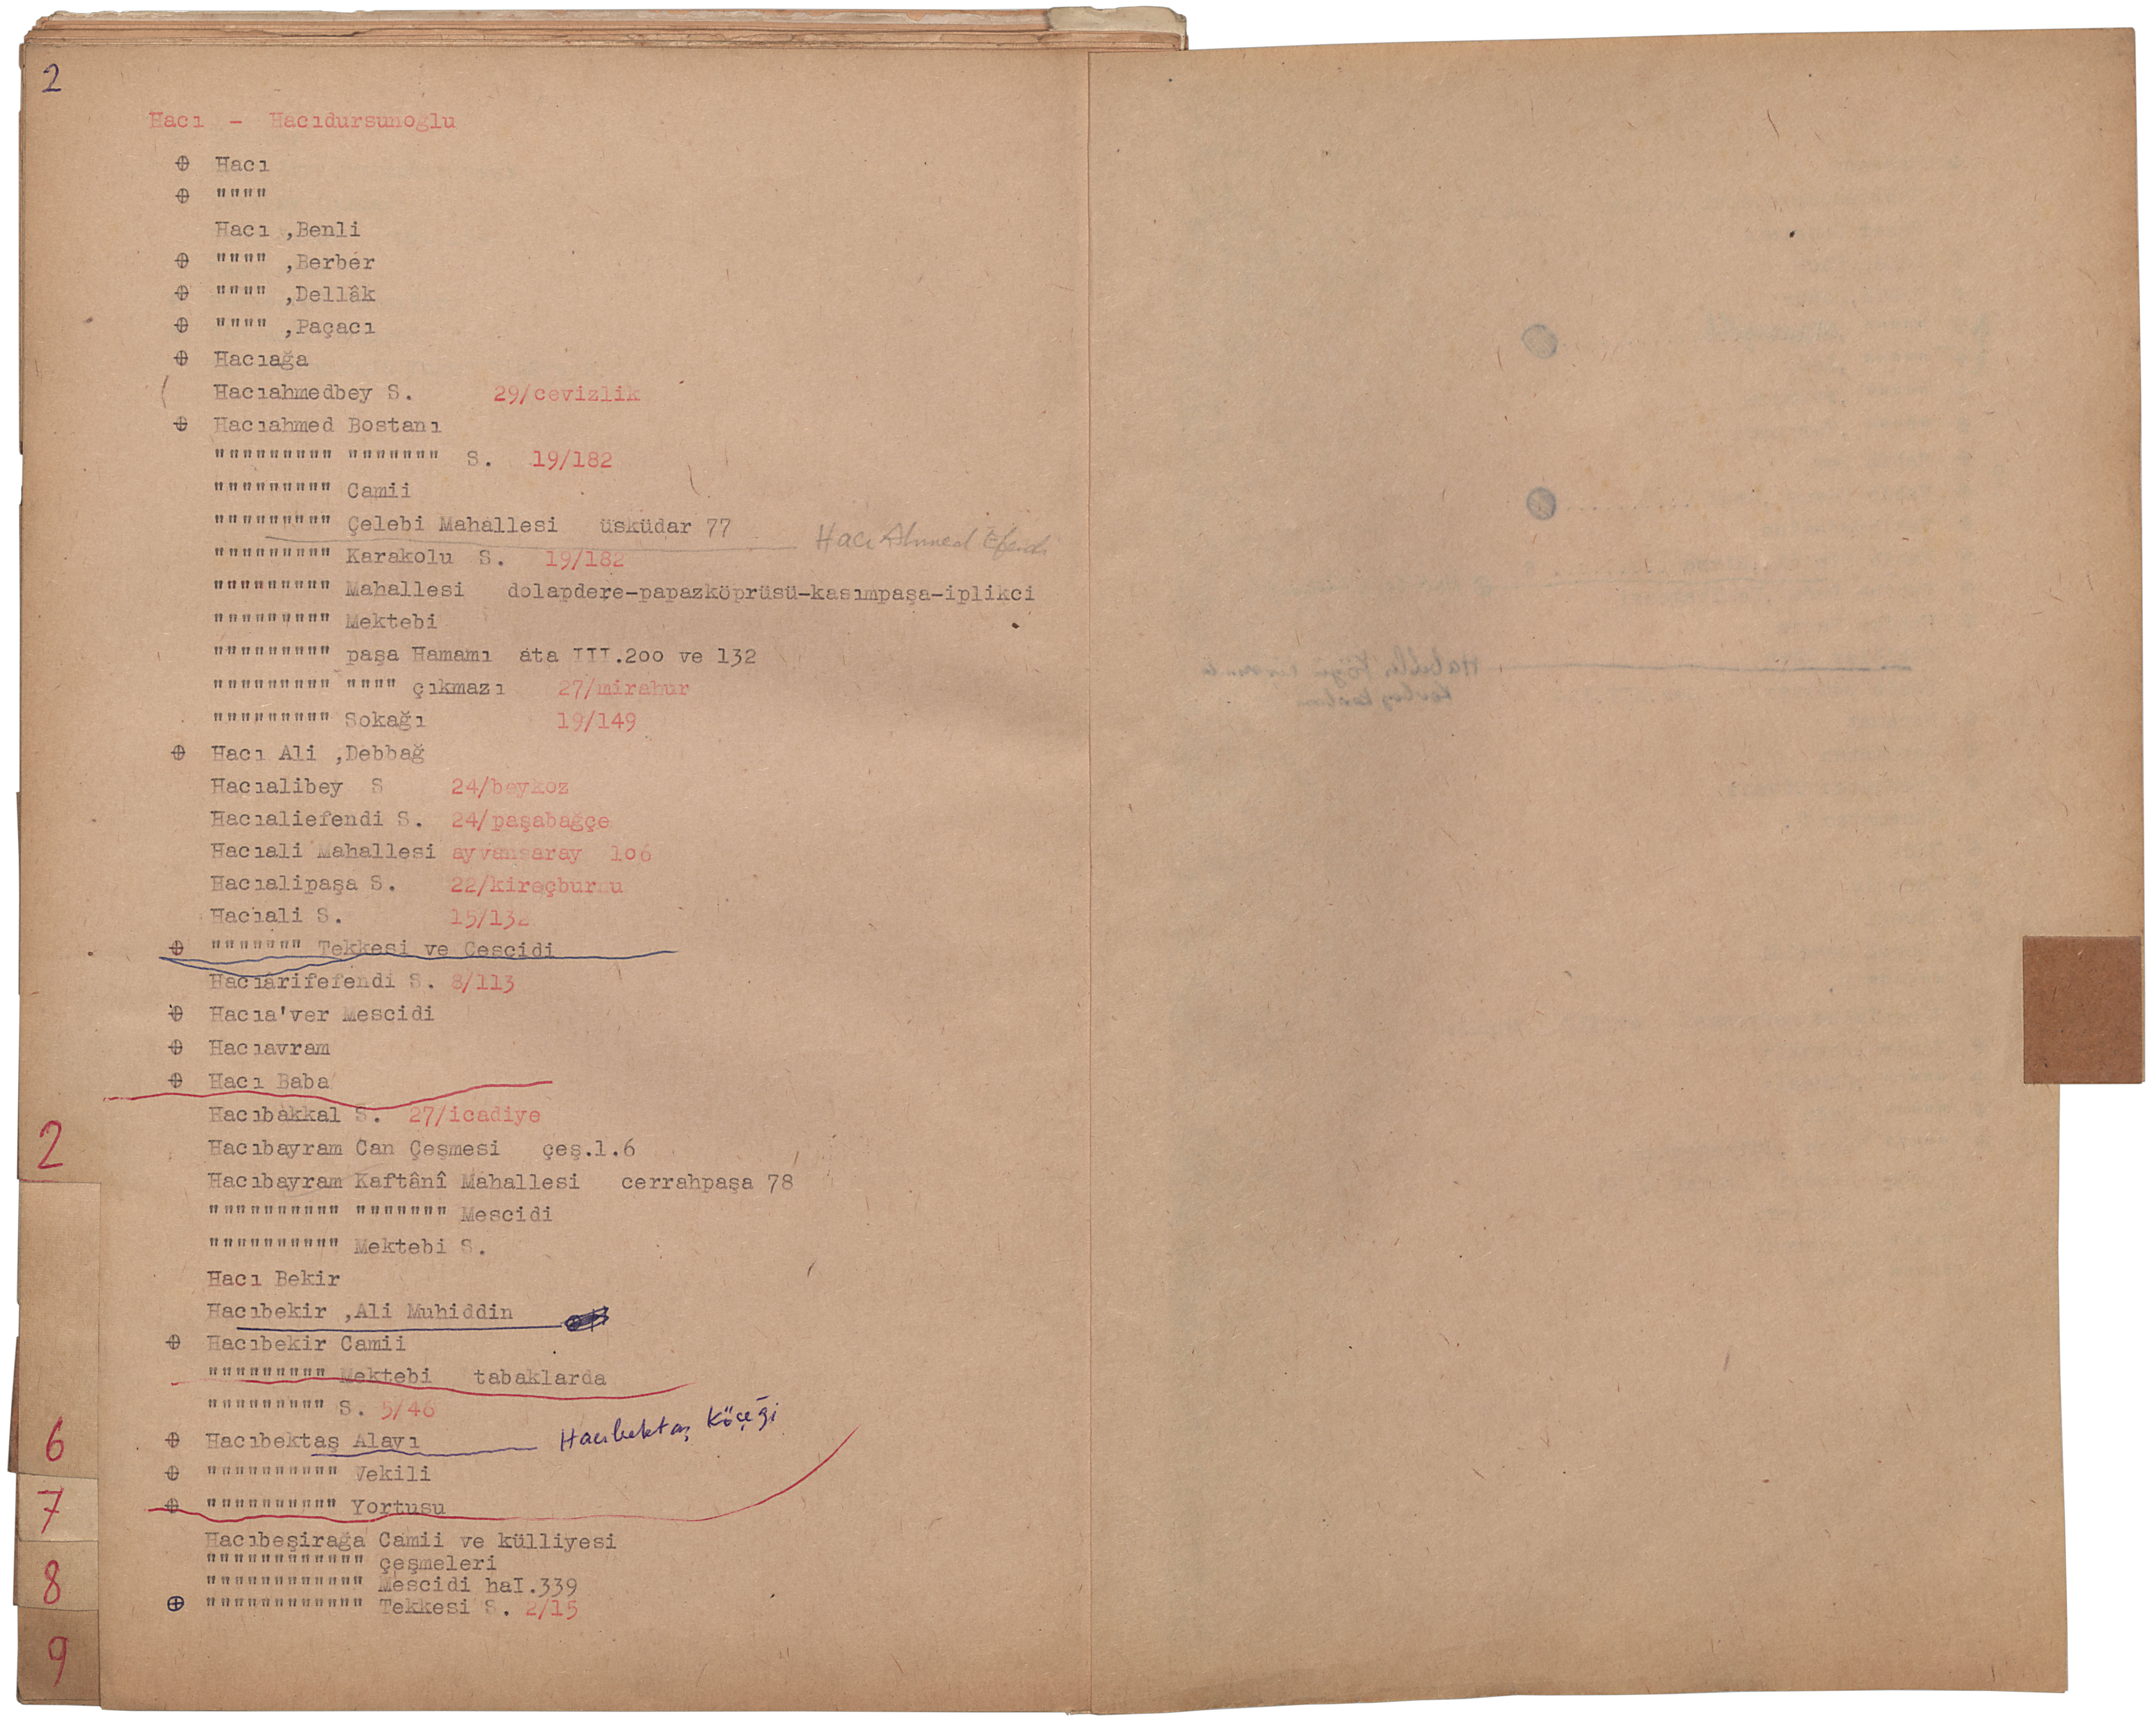 2
Hacı - Hacıdursunoğlu
⊕ Hacı
⊕ """"
Hacı ,Benli
⊕ """" ,Berber
⊕ """" ,Dellâk
⊕ """" ,Paçacı
⊕ Hacıağa
( Hacıahmedbey S. 29/cevizlik
⊕ Hacıahmed Bostanı
""""""""" """"""" S. 19/182
""""""""" Camii
""""""""" Çelebi Mahallesi üsküdar 77 Hacı Ahmed Efendi
""""""""" Karakolu S. 19/182
""""""""" Mahallesi dolapdere-papazköprüsü-kasımpaşa-iplikci
""""""""" Mektebi
""""""""" paşa Hamamı ata III.2oo ve 132
""""""""" """" çıkmazı 27/mirahur
""""""""" Sokağı 19/149
⊕ Hacı Ali ,Debbağ
Hacıalibey S 24/beykoz
Hacıaliefendi S. 24/paşabağçe
Hacıali Mahallesi ayvansaray 1o6
Hacıalipaşa S. 22/kireçburnu
Hacıali S. 15/132
⊕ """"""" Tekkesi ve Cescidi
Hacıârifefendi S. 8/113
⊕ Hacıa'ver Mescidi
⊕ Hacıavram
⊕ Hacı Baba
Hacıbakkal S. 27/icadiye
2
Hacıbayram Can Çeşmesi çeş.1.6
Hacıbayram Kaftânî Mahallesi cerrahpaşa 78
"""""""""" """"""" Mescidi
"""""""""" Mektebi S.
Hacı Bekir
Hacıbekir ,Ali Muhiddin
⊕ Hacıbekir Camii
""""""""" Mektebi tabaklarda
""""""""" S. 5/46
6
⊕ Hacıbektaş Alayı Hacıbektaş Köçeği
⊕ """""""""" Vekili
7
⊕ """""""""" Yortusu
Hacıbeşirağa Camii ve külliyesi
"""""""""""" çeşmeleri
8
"""""""""""" Mescidi haI.339
⊕ """""""""""" Tekkesi S. 2/15
9